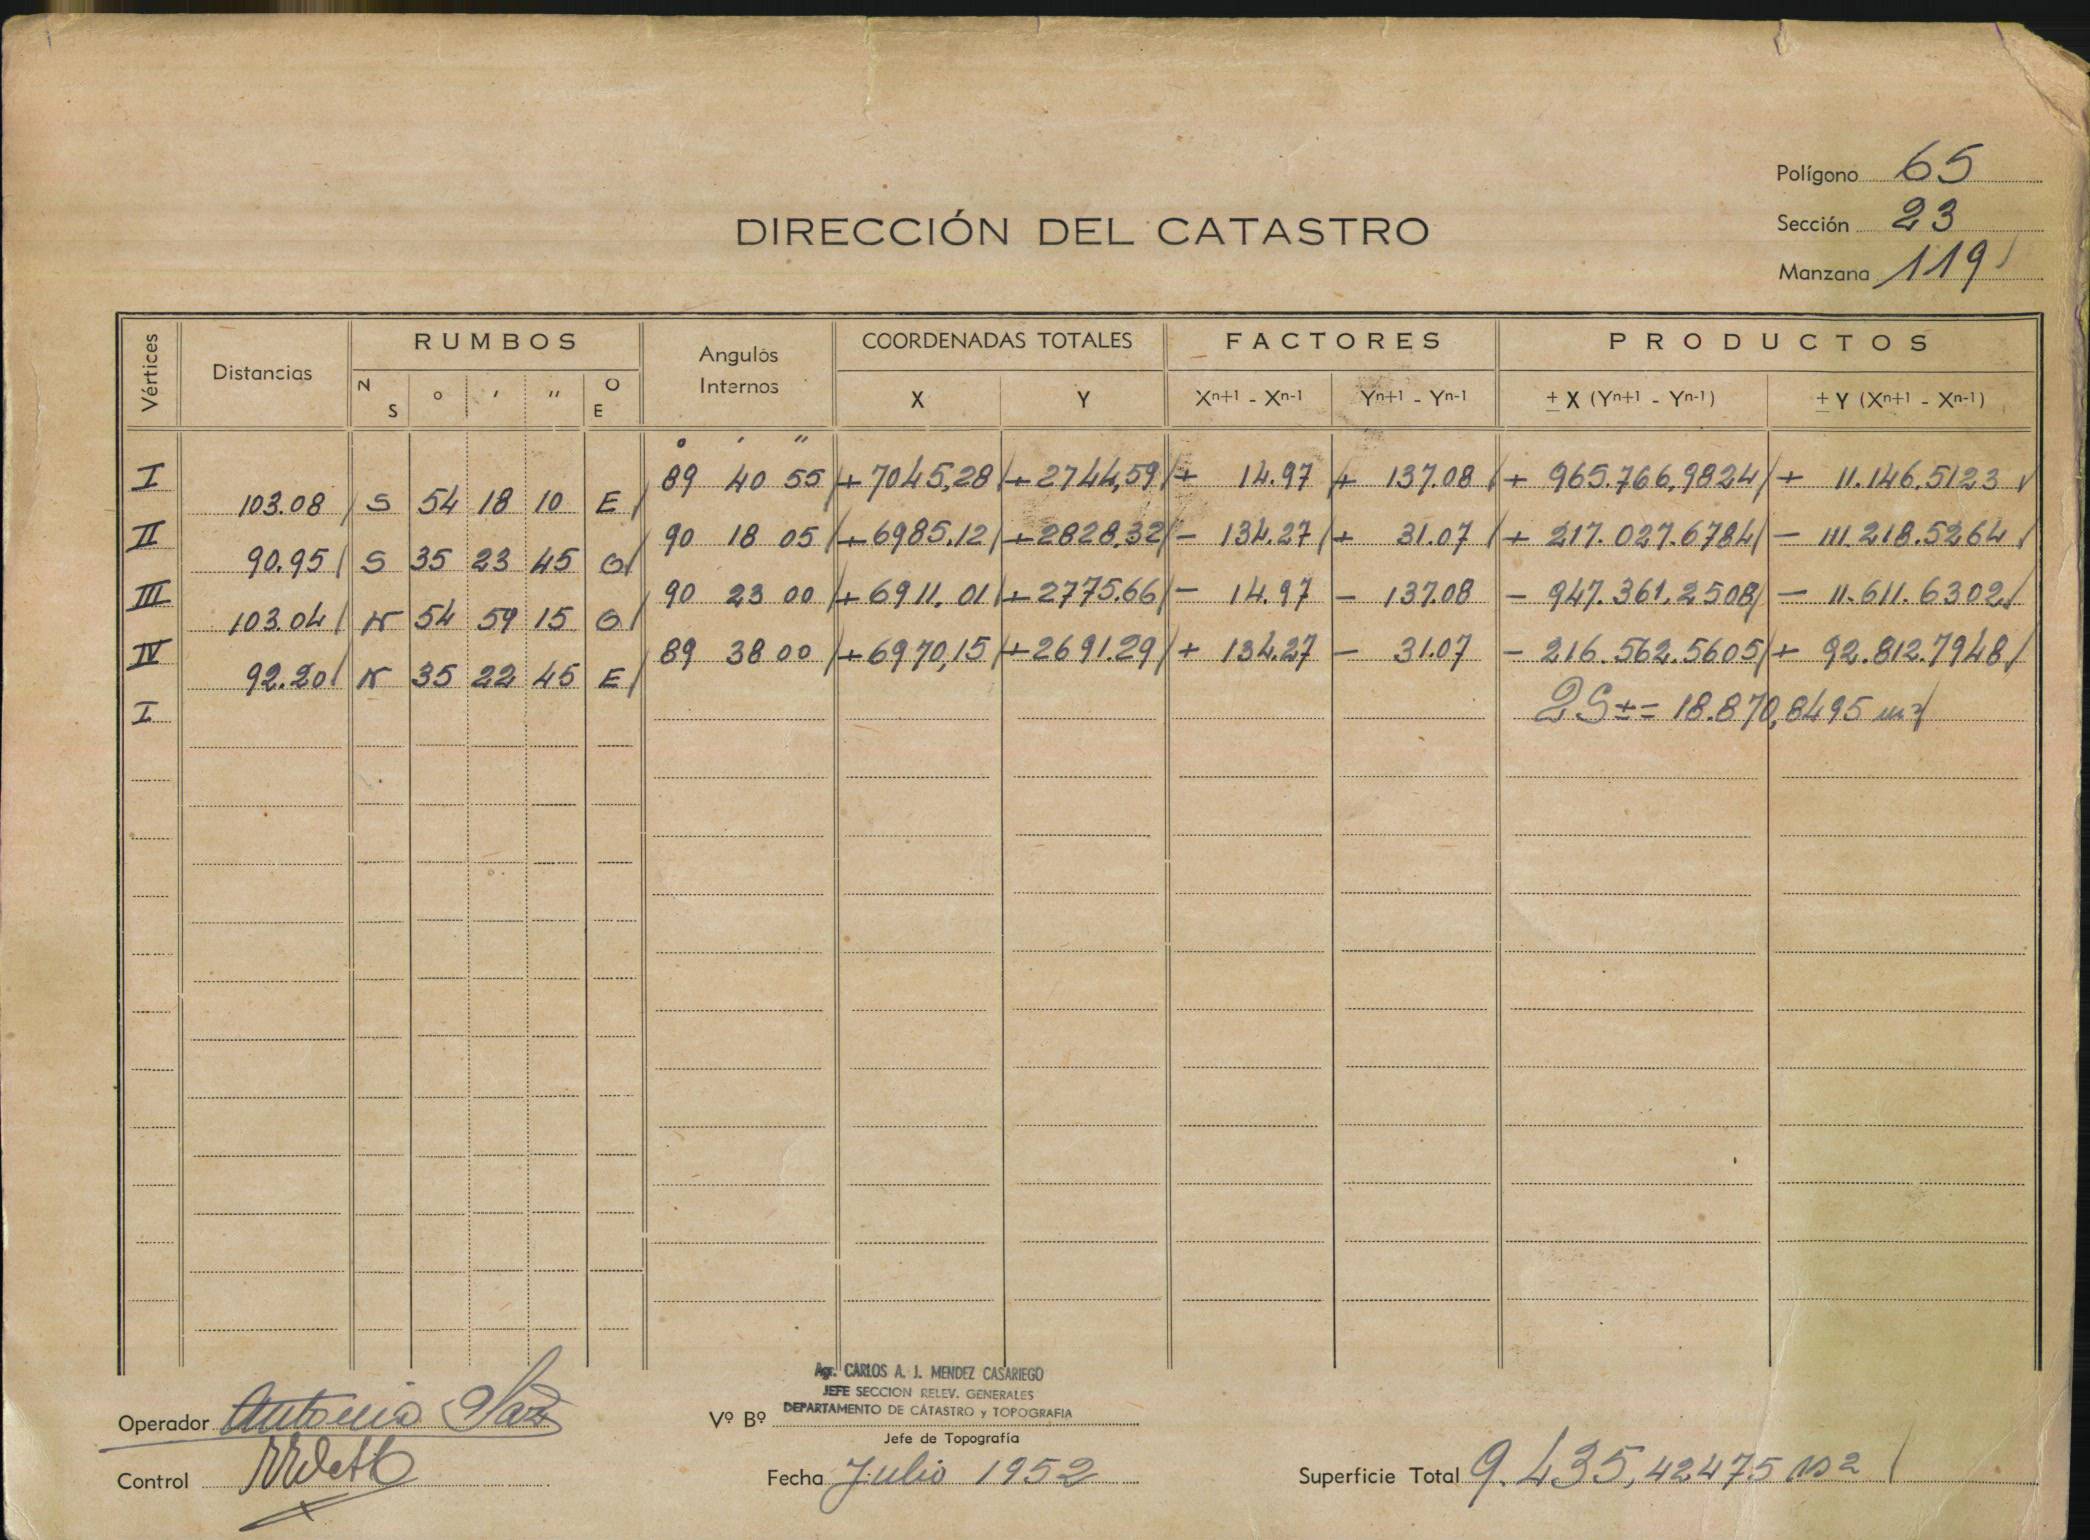 Polígono 65
DIRECCIÓN DEL CATASTRO
Sección 23
Manzana 119
Vértices Distancias RUMBOS Angulos Internos COORDENADAS TOTALES FACTORES PRODUCTOS
N S ° ' " O E X Y Xn+1 - Xn-1 Yn+1 - Yn-1 ± X (Yn+1 - Yn-1) ± Y (Xn+1 - Xn-1)
° ' "
I 89 40 55 +7045,28 +2744,59 + 14.97 + 137.08 + 965.766,9824 + 11.146.5123
103.08 S 54 18 10 E
II 90 18 05 +6985.12 +2828,32 - 134.27 + 31.07 + 217.027.6784 - 111.218.5264
90.95 S 35 23 45 O
III 90 23 00 +6911.01 +2775.66 - 14.97 - 137.08 - 947.361.2508 - 11.611.6302
103.04 N 54 59 15 O
IV 89 38 00 +6970,15 +2691.29 + 134.27 - 31.07 - 216.562.5605 + 92.812.7948
92.20 N 35 22 45 E
I 2S±= 18.870,8495 m2
Agr. CARLOS A. J. MENDEZ CASARIEGO
JEFE SECCION RELEV. GENERALES
DEPARTAMENTO DE CATASTRO y TOPOGRAFIA
Operador Antonio
Vº Bº
Jefe de Topografía
Control
Fecha Julio 1952
Superficie Total 9.435,42475 m2